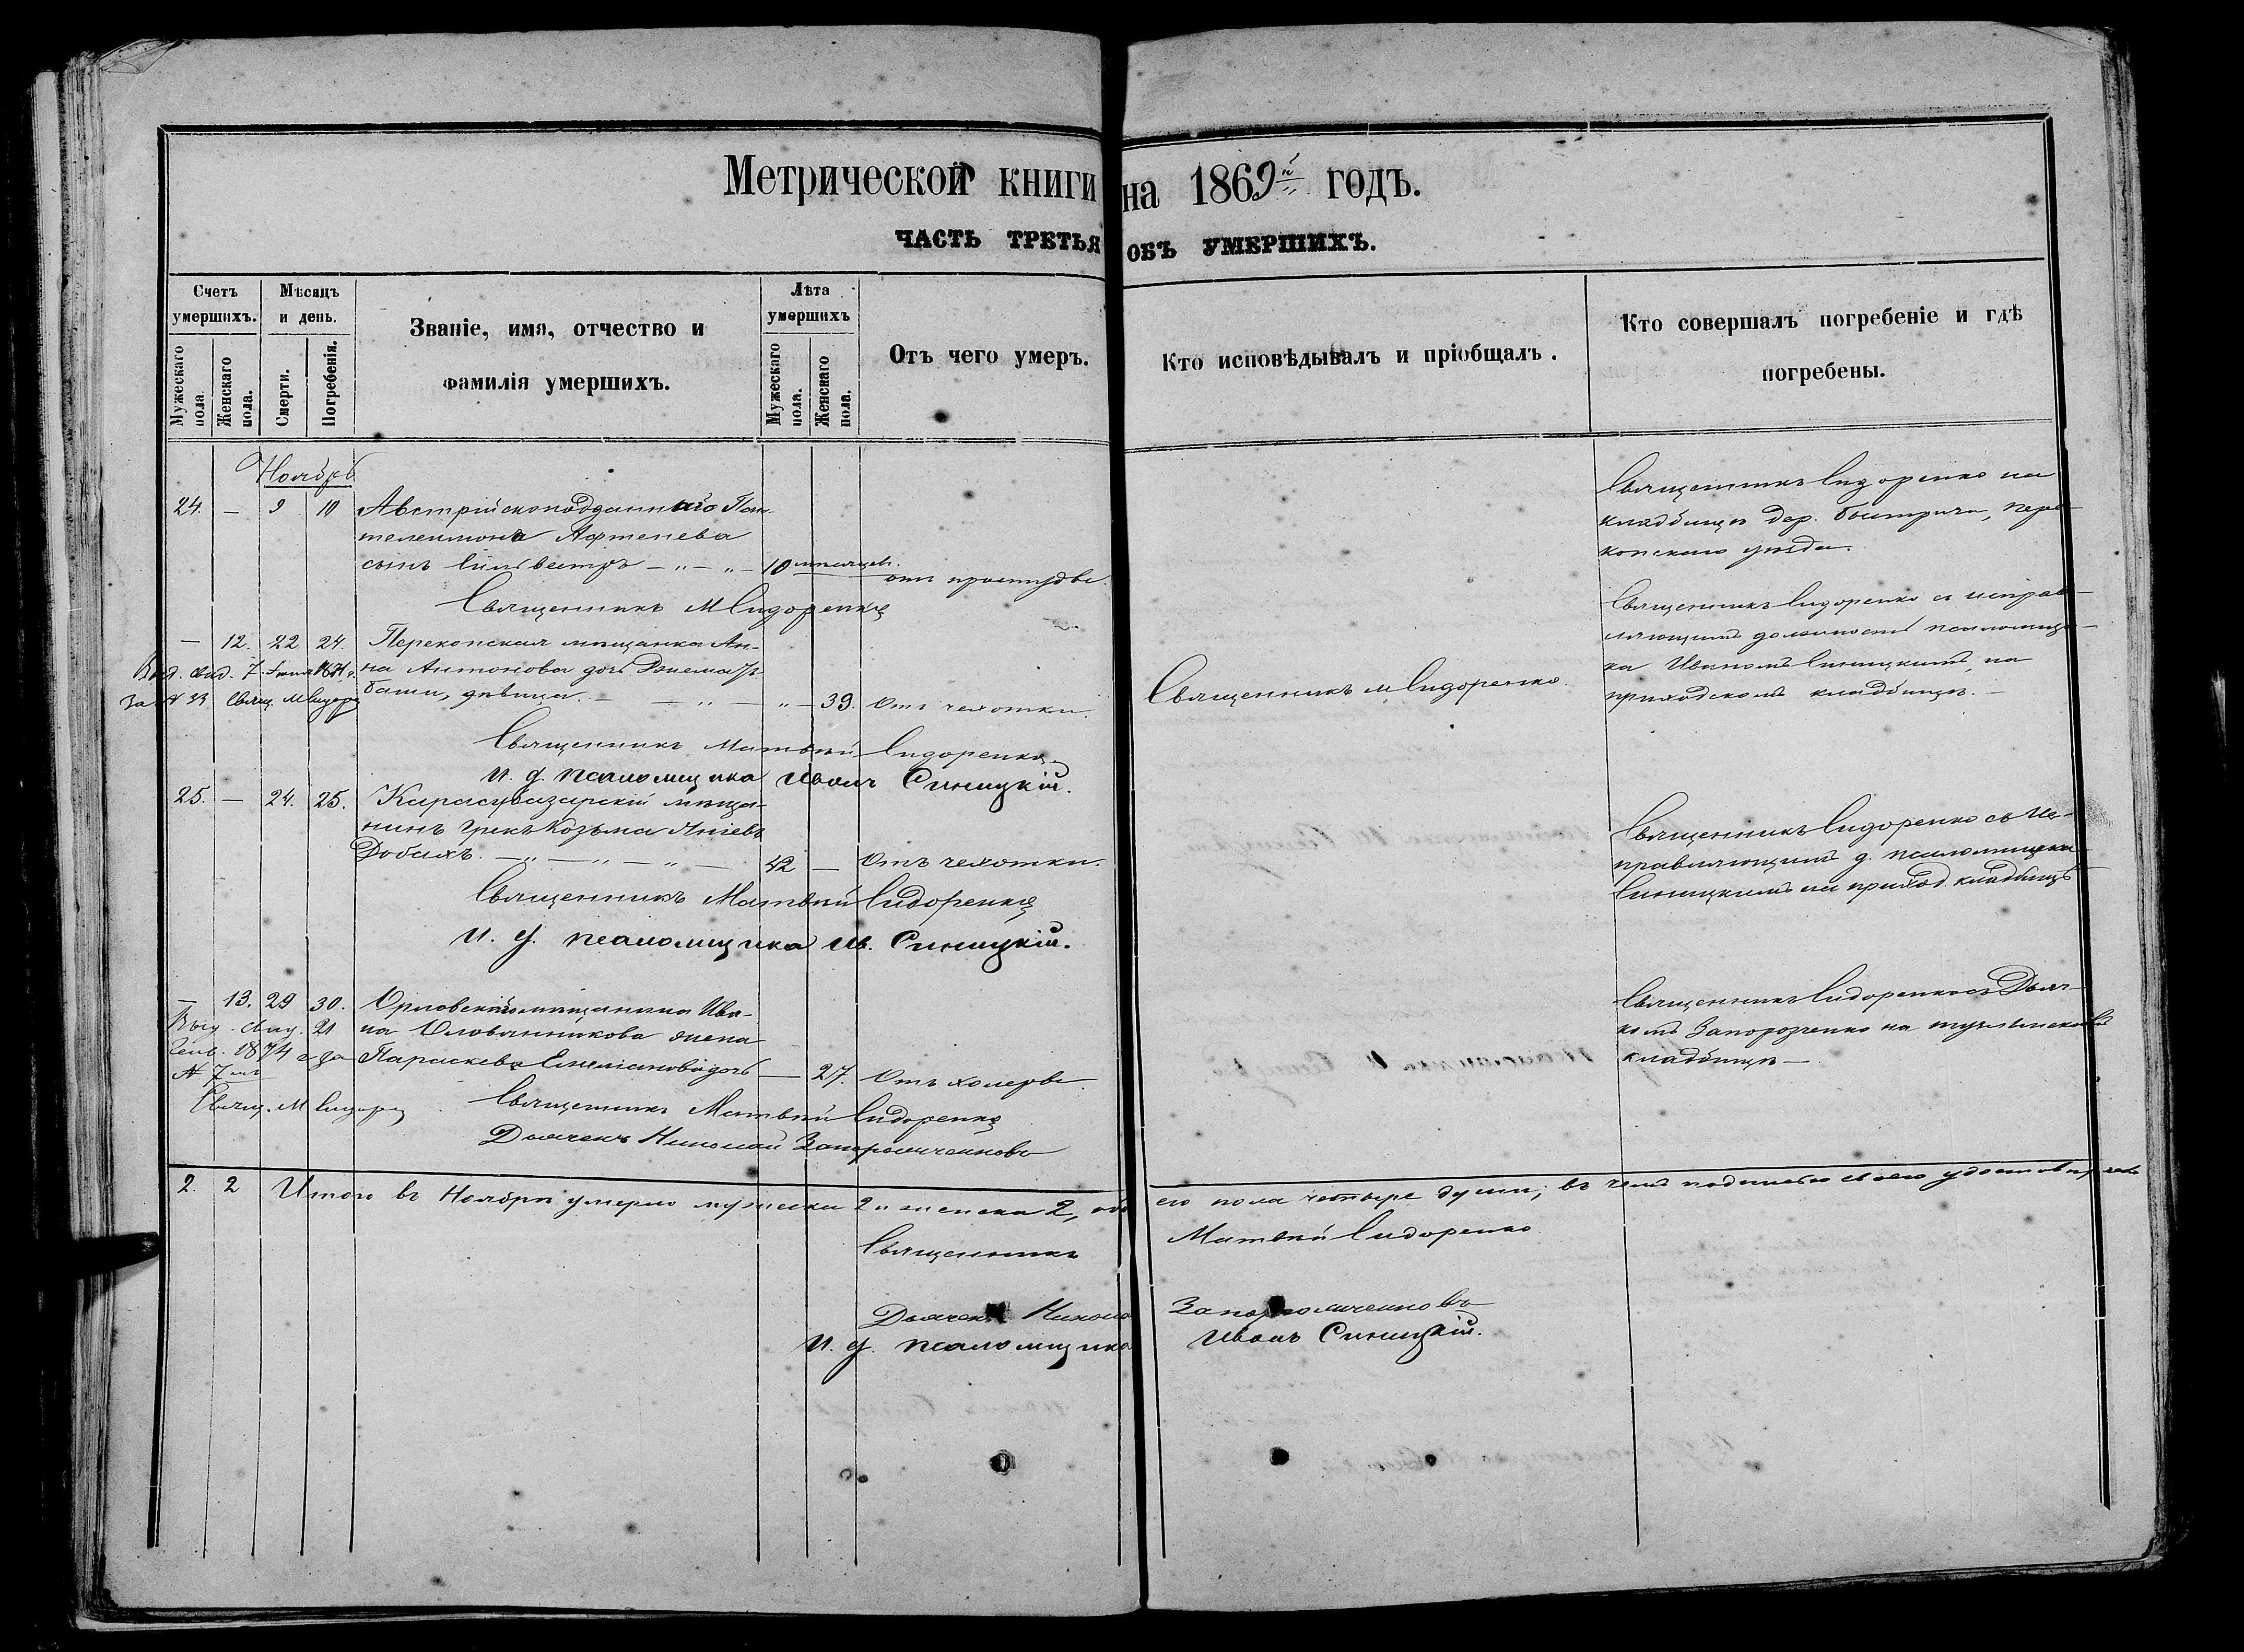 Метрической книги на 1869й годъ.
ЧАСТЬ ТРЕТЬЯ ОБЪ УМЕРШИХЪ.
Счетъ умершихъ.
Мужескаго пола.
Женскаго пола.
Мѣсяцъ и день.
Смерти.
Погребенія.
Званіе, имя, отчество и
фамилія умершихъ.
Лѣта умершихъ
Мужескаго пола.
Женскаго пола.
Отъ чего умеръ.
Кто исповѣдывалъ и пріобщалъ.
Кто совершалъ погребеніе и гдѣ
погребены.
Ноябрь
24. — 9 10 Австрійскоподданнаго Пан-
телеимона
сынъ Сильвестръ — „ — „ — 10 мѣсяцев. отъ простуды.
Священникъ Сидоренко на
кладбищѣ дер. , пере-
копскаго уѣзда.
Священникъ М Сидоренко
— 12. 22 24. Перекопская мѣщанка Ан-
на Антонова дочь
баши, дѣвица. — — „ — „ — 39. Отъ чехотки.
Выд. свид. 7
За № 33 Свящ. М Сидорен
Священникъ М Сидоренко.
Священникъ Сидоренко съ исправ-
ляющимъ должность псаломщи-
ка Иваномъ Синицкимъ, на
приходскомъ кладбищѣ. —
Священникъ Матвѣй Сидоренко
И. д. псаломщика Иванъ Синицкій.
25. — 24. 25. Карасубазарскій мѣща-
нинъ Грекъ Козьма
— „ — „ — „ — 42 — Отъ чехотки.
Священникъ Сидоренко съ ис-
правляющимъ д. псаломщика
Синицкимъ на приход. кладбищѣ
Священникъ Матвѣй Сидоренко
И. д. псаломщика Ив. Синицкій.
— 13. 29 30. Орловскаго мѣщанина Ива-
на Оловянникова жена
Параскева Емеліанова дочь — 27. Отъ холеры.
Выд. свид. 21
Генв. 1874 г за
№ 7мъ
Свящ. М Сидорен
Священникъ Сидоренко съ Дьяч-
комъ Запорозченко на
кладбищѣ —
Священникъ Матвѣй Сидоренко
Дьячекъ Николай
2. 2 Итого въ Ноябрѣ умерло мужеска 2 и женска 2, обо его пола четыре души; въ чемъ подписью своею удостовѣряемъ
Священникъ Матвѣй Сидоренко
Дьячекъ Никола
И. д. псаломщика Иванъ Синицкій.